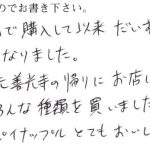 のでお書き下さい。
で購入して以来 だいす
なりました。
元善光寺の帰りに お店し
ろんな 種類を 買いました
パイナップル とても おいし